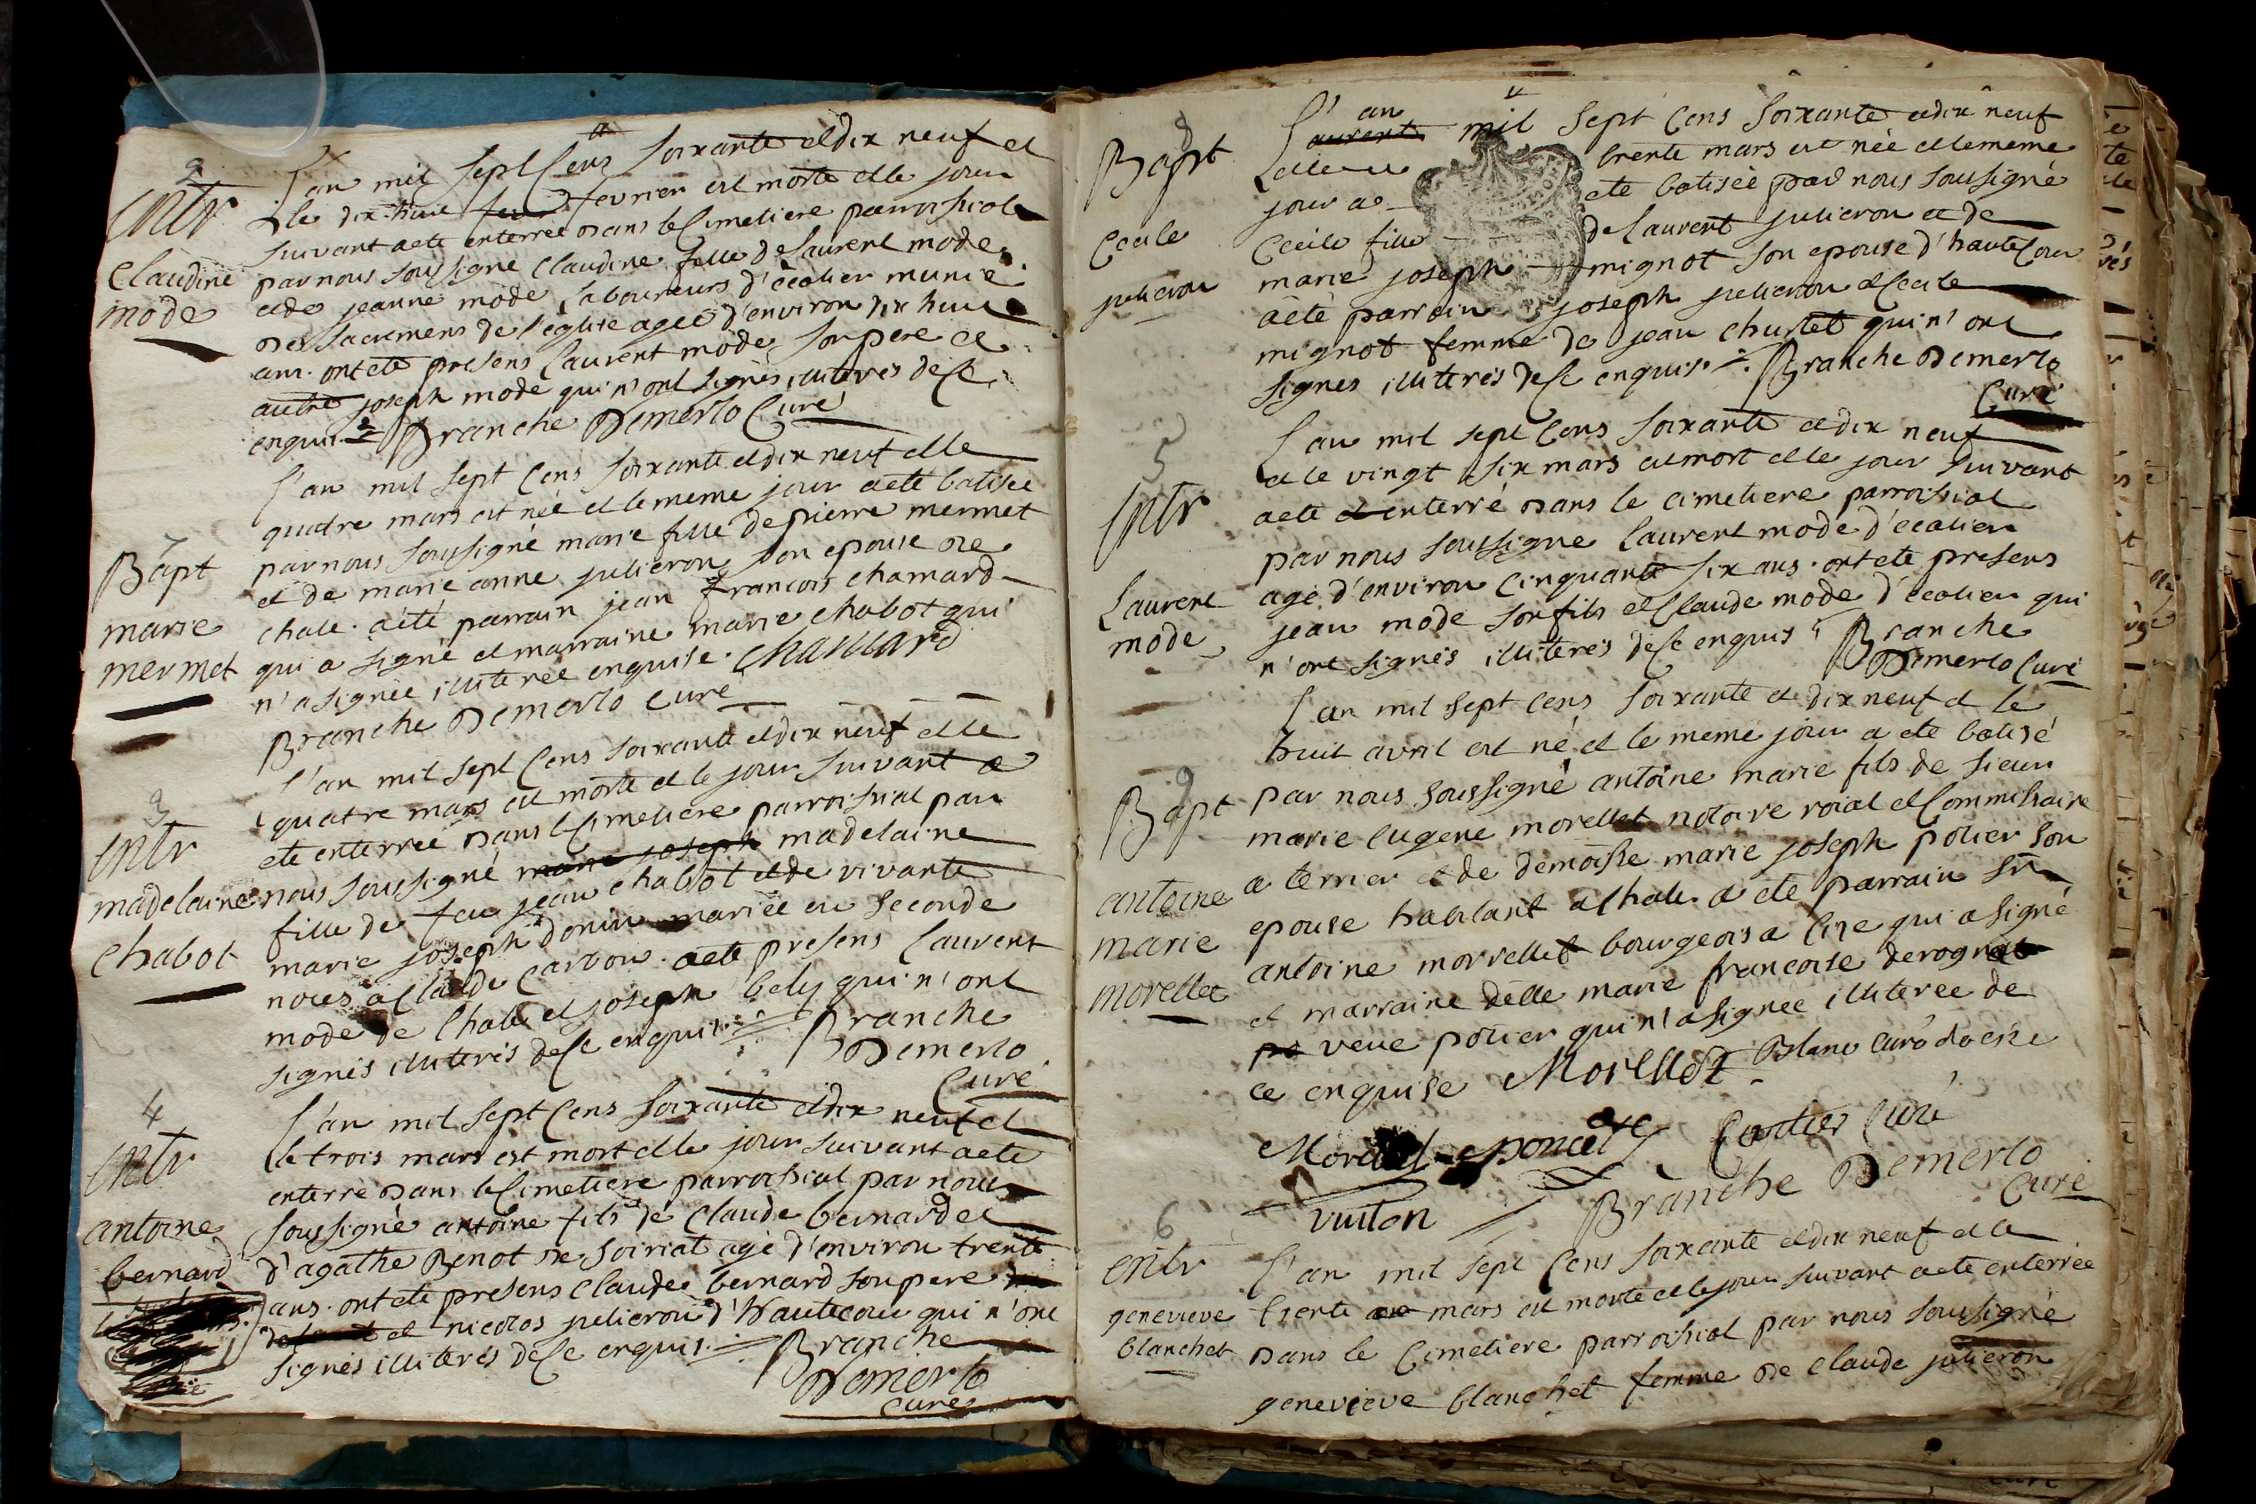 2
Entr
Claudine
mode
L'an mil sept Cens soixante et dix neuf et
le dix huit fevrier est morte et le jour
suivant a ete enterrée dans le Cimetiere parroissial
par nous soussigné Claudine fille de laurent mode
et de jeanne mode laboureurs d'ecolier munie
des sacremens de l'eglise agée d'environ dix huit
ans. ont ete presens laurent mode son pere et
autre joseph mode qui n'ont signés illiterés de ce
enquis Branche Demerlo Curé
7
Bapt
marie
mermet
L'an mil sept Cens soixante et dix neuf et le
quatre mars est née et le meme jour a ete batisée
par nous soussigné marie fille de pierre mermet
et de marie anne julieron son epouse de
chale. a été parrain jean francois chamard
qui a signé et marraine marie chabot qui
n'a signée illiterée enquise. Chamard
Branche Demerlo curé
3
Entr
madelaine
Chabot
L'an mil sept Cens soixante et dix neuf et le
quatre mars est morte et le jour suivant a
ete enterrée dans le Cimetiere parroissial par
nous soussigné marie joseph madelaine
fille de feu jean chabot et de vivante
marie joseph donin mariée en seconde
noces a Claude carbon. a ete presens laurent
mode de Chale et joseph bely qui n'ont
signés illiterés de ce enquis Branche
Demerlo
Curé
4
Entr
antoine
bernard
L'an mil sept Cens soixante et dix neuf et
le trois mars est mort et le jour suivant a ete
enterré dans le Cimetiere parroissial par nous
soussigné antoine fils de Claude bernard et
d'agathe Benot de soiriat agé d'environ trente
ans. ont ete presens Claude bernard son pere
et nicolas julieron d'hautecour qui n'ont
signés illiterés de ce enquis. Branche
Demerlo
curé
8
Bapt
Cecile
julieron
L'an mil sept Cens soixante et dix neuf
et le trente mars est née et le meme
jour a ete batisée par nous soussigné
Cecile fille de Laurent julieron et de
marie joseph mignot son epouse d'hautecour
a été parrain joseph julieron et Cecile
mignot femme de jean chustet qui n'ont
signes illiterés de ce enquis. Branche Demerlo
Curé
5
Entr
Laurent
mode
L'an mil sept Cens soixante et dix neuf
et le vingt six mars est mort et le jour suivant
a ete enterré dans le cimetiere parroissial
par nous soussigné laurent mode d'ecolier
agé d'environ Cinquante six ans. ont ete presens
jean mode son fils et Claude mode d'ecolier qui
n'ont signés illiterés de ce enquis Branche
Demerlo Curé
9
Bapt
antoine
marie
morellet
L'an mil sept Cens soixante et dix neuf et le
huit avril est né et le meme jour a ete batisé
par nous soussigné antoine marie fils de sieur
marie Eugene morellet notaire roial et Commissaire
a terrier et de demoiselle marie joseph potier son
epouse habitant a Chale. a ete parrain sr
antoine morrellet bourgeois a Cize qui a signé
et marraine delle marie francoise derognat
veue potier qui n'a signée illiterée de
ce enquise Morellet Blanc curé de cize
Morellet poncet Cartier Curé
vuiton Branche Demerlo
Curé
6
Entr
genevieve
blanchet
L'an mil sept Cens soixante et dix neuf et le
trente mars est morte et le jour suivant a ete enterrée
dans le Cimetiere parroissial par nous soussigné
genevieve blanchet femme de Claude julieron